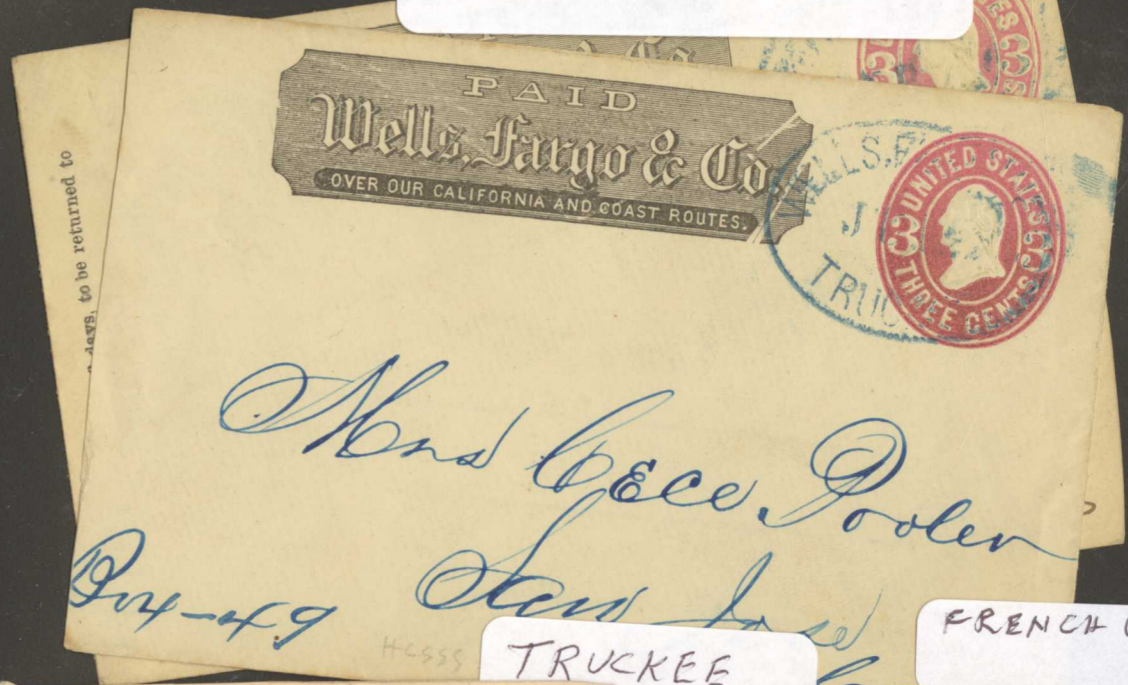 & Co
ES 3
3
days, to be returned to
PAID
Wells, Fargo & Co.
OVER OUR CALIFORNIA AND COAST ROUTES.
WELLS, F
J
TRUC
UNITED STATES
3 3
THREE CENTS
Mrs Cece Pooler
San Jose
Box-49
HCSSS
TRUCKEE
FRENCH